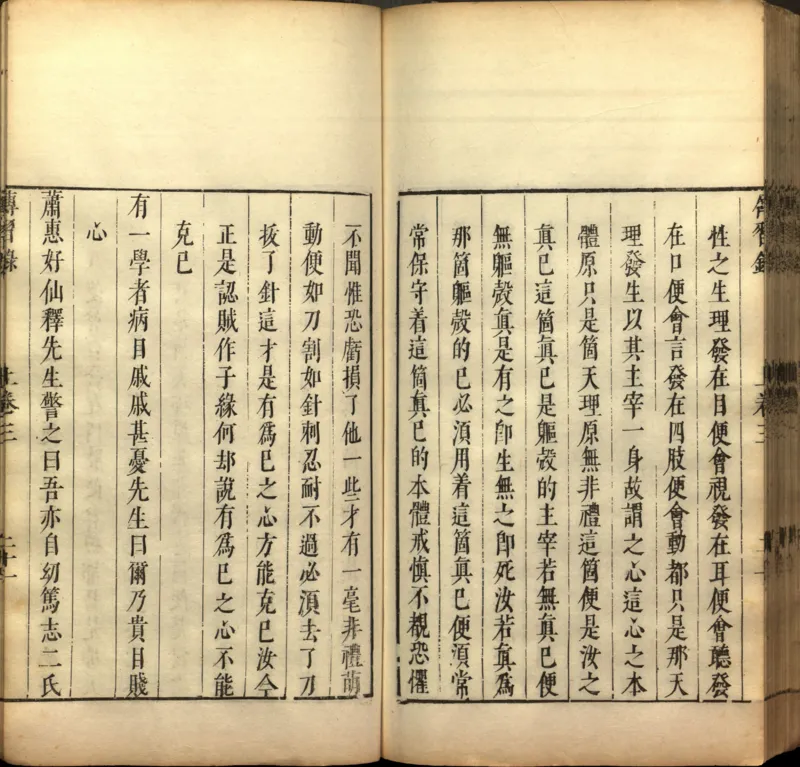 性之生理發在目便會視發在耳便會聽發
在口便會言發在四肢便會動都只是那天
理發生以其主宰一身故謂之心這心之本
體原只是箇天理原無非禮這箇便是汝之
真己這箇真己是軀殼的主宰若無真己便
無軀殼真是有之即生無之即死汝若真為
那箇軀殼的己必須用着這箇真己便須常
常保守着這箇真己的本體戒慎不覩恐懼
不聞惟恐虧損了他一些才有一毫非禮萌
動便如刀割如針刺忍耐不過必須去了刀
拔了針這才是有為己之心方能克己汝今
正是認賊作子緣何却說有為己之心不能
克己
有一學者病目戚戚甚憂先生曰爾乃貴目賤
心
蕭惠好仙釋先生警之曰吾亦自幼篤志二氏
傳習錄 上卷三 二十一